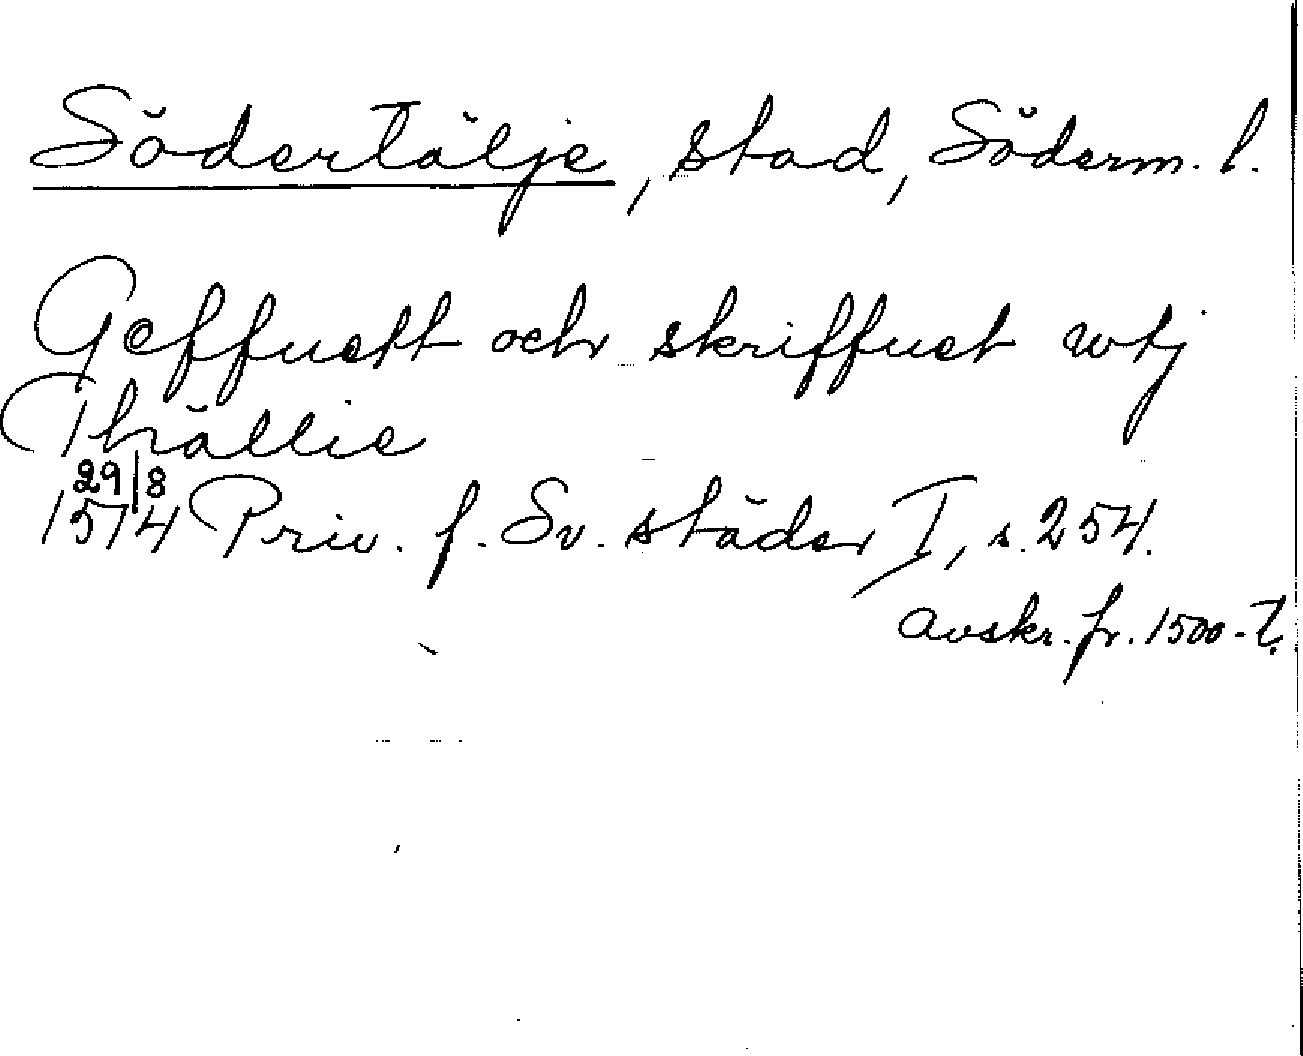 Södertälje, stad, Söderm. l.
Geffuett och skriffuet wtj
Thällie
29/8
1574 Priv. f. Sv. städer I, s. 254.
avskr. fr. 1500-t.